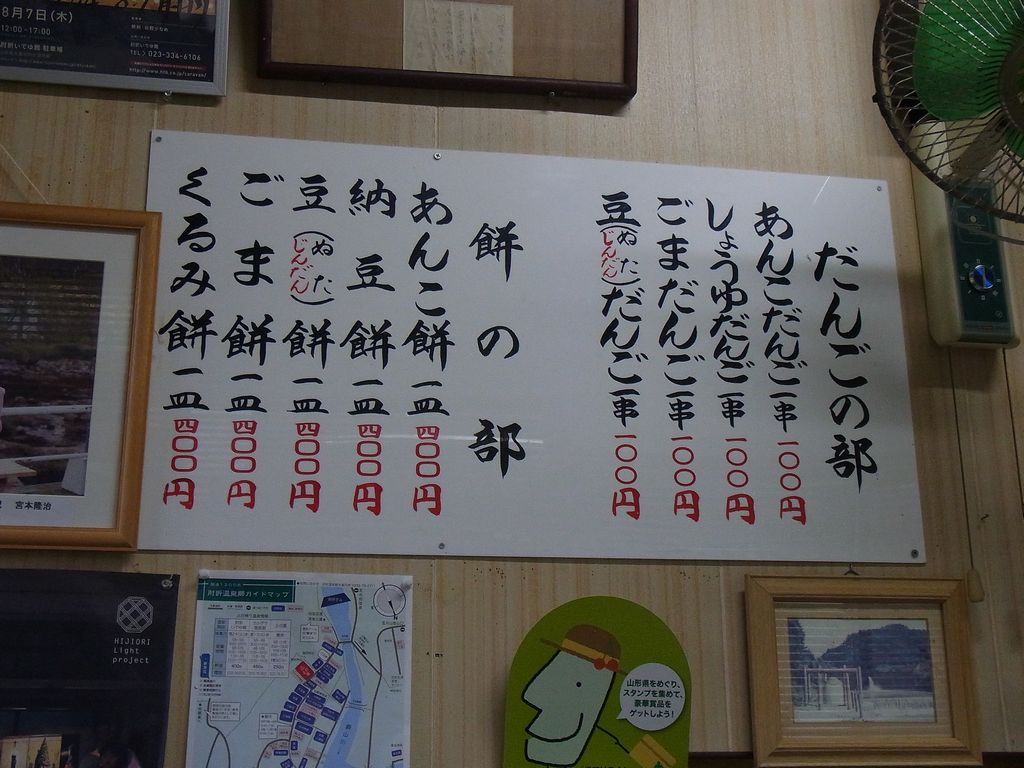 8月7日(木)
12:00-17:00
肘折いでゆ館 駐車場
TEL 023-334-6106
だんごの部
あんこだんご一串一〇〇円
しょうゆだんご一串一〇〇円
ごまだんご一串一〇〇円
豆(ぬた)じんだんだんご一串一〇〇円
餅の部
あんこ餅一皿四〇〇円
納豆餅一皿四〇〇円
豆(ぬた)じんだん餅一皿四〇〇円
ごま餅一皿四〇〇円
くるみ餅一皿四〇〇円
宮本隆治
HIJIORI
Light
project
肘折温泉郷ガイドマップ
山形県をめぐり、
スタンプを集めて、
豪華賞品を
ゲットしよう!